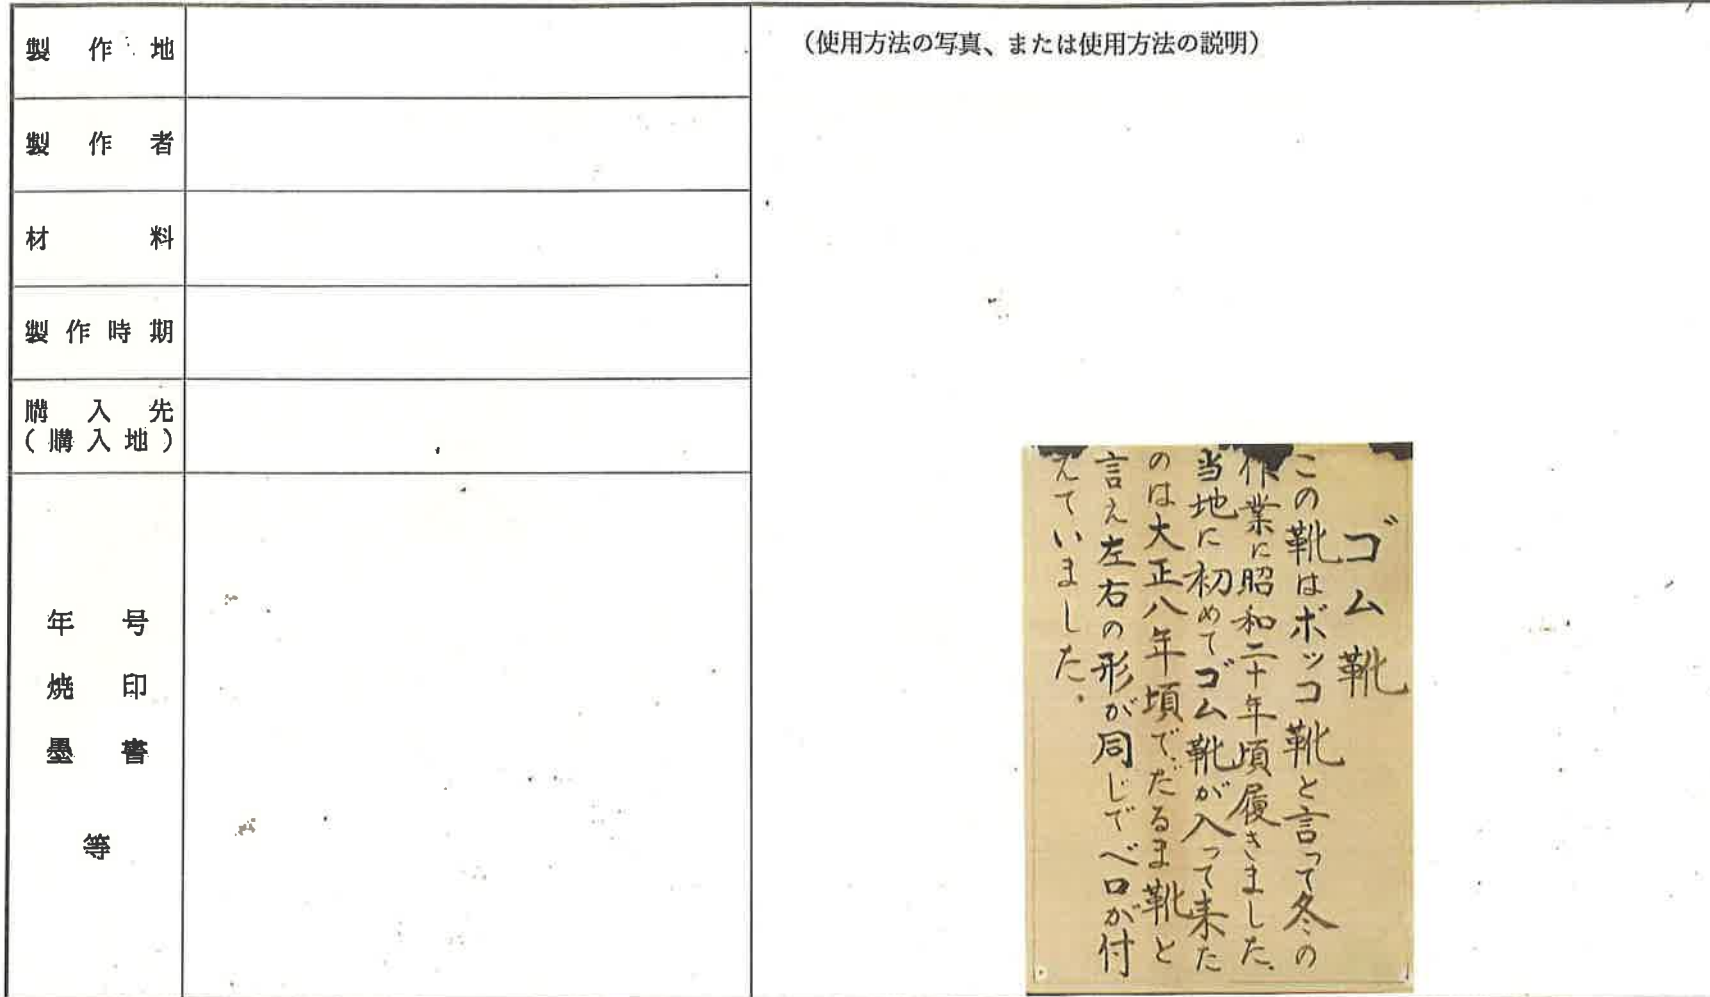 製作地
製作者
材料
製作時期
購入先
(購入地)
年号
焼印
墨書
等
(使用方法の写真、または使用方法の説明)
ゴム靴
この靴はボッコ靴と言って冬の
作業に昭和二十年頃履きました、
当地に初めてゴム靴が入って来た
のは大正八年頃で、だるま靴と
言え左右の形が同じでベロが付
えていました、